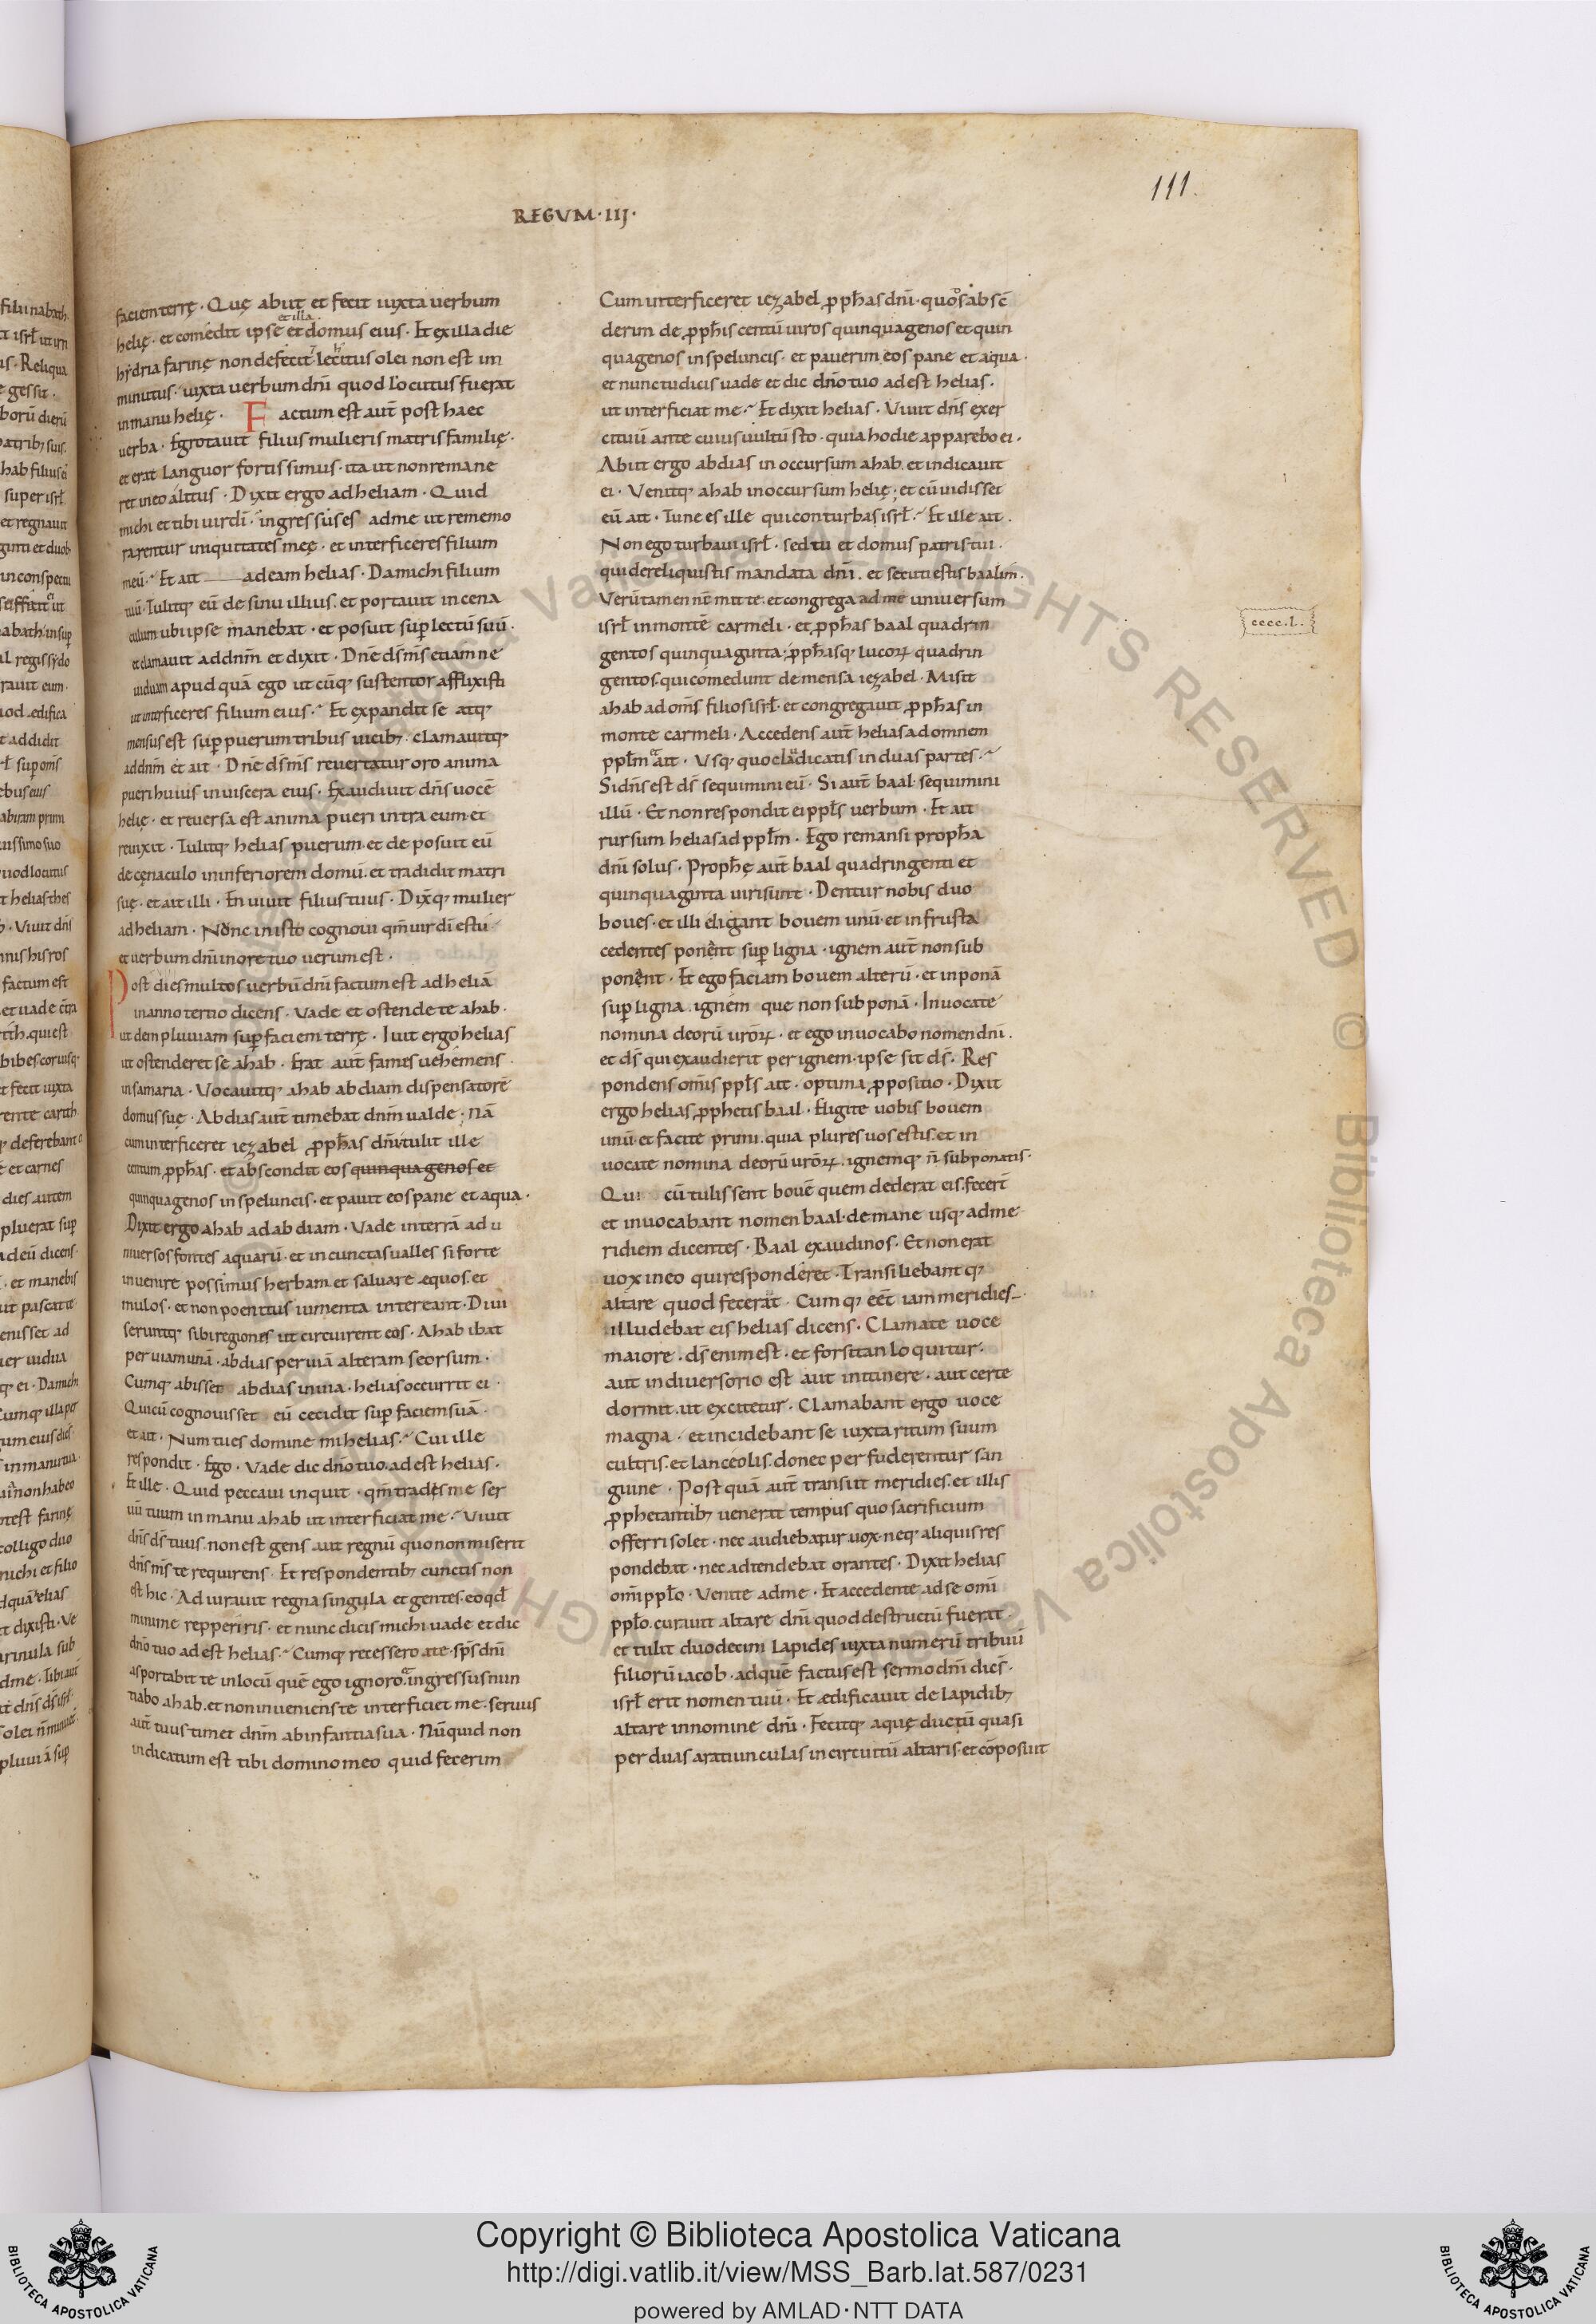 REGVM·IIJ·
111.
faciem terrę· Quę abiit et fecit iuxta uerbum
et illa
helię· et comedit ipse et domus eius· Et ex illa die
hydria farinę non defecit· lecitus olei non est im
minutus· iuxta uerbum dñi quod locutus fuerat
in manu helię· Factum est aut̄ post haec
uerba· Egrotauit filius mulieris matris familię·
et erat languor fortissimus· ita ut non remane
ret in eo alitus· Dixit ergo ad heliam· Quid
michi et tibi uir dī· ingressus es ad me ut rememo
rarentur iniquitates meę· et interficeres filium
meū· Et ait ad eam helias· Da michi filium
tuū· Tulitq; eū de sinu illius· et portauit in cena
culum ubi ipse manebat· et posuit sup lectū suū·
et clamauit ad dnm̄ et dixit· Dn̄e ds̄ ms̄ etiam ne
uiduam apud quā ego ut cūq; sustentor afflixisti
ut interficeres filium eius· Et expandit se atq;
mensus est sup puerum tribus uicib; clamauitq;
ad dnm̄ et ait· Dn̄e ds̄ ms̄ reuertatur oro anima
pueri huius in uiscera eius· Exaudiuit dn̄s uocē
helię· et reuersa est anima pueri intra eum et
reuixit· Tulitq; helias puerum et deposuit eū
de cęnaculo in inferiorem domū· et tradidit matri
suę· et ait illi· En uiuit filius tuus· Dixq; mulier
ad heliam· Nunc in isto cognoui qm̄ uir dī es tu
et uerbum dn̄i in ore tuo uerum est·
Post dies multos uerbū dn̄i factum est ad heliā
in anno tertio dicens· Vade et ostende te ahab·
ut dem pluuiam sup faciem terrę· Iuit ergo helias
ut ostenderet se ahab· Erat aut̄ fames uehemens
in samaria· Vocauitq; ahab abdiam dispensatorē
domus suę· Abdias aut̄ timebat dnm̄ ualde· Nā
cum interficeret iezabel pphas dn̄i tulit ille
centum pphas· et abscondit eos quinquagenos et
quinquagenos in speluncis· et pauit eos pane et aqua·
Dixit ergo ahab ad abdiam· Vade in terrā ad u
niuersos fontes aquarū· et in cunctas ualles si forte
inuenire possimus herbam et saluare equos et
mulos· et non poenitus iumenta intereant· Diui
seruntq; sibi regiones ut circuirent eos· Ahab ibat
per uiam unā· abdias per uiā alteram seorsum·
Cumq; abisset abdias in uia· helias occurrit ei·
Qui cū cognouisset eū cecidit sup faciem suā·
et ait· Num tu es domine mi helias· Cui ille
respondit· Ego· Vade dic dn̄o tuo adest helias·
Et ille· Quid peccaui inquit· qm̄ trades me ser
uū tuum in manu ahab ut interficiat me· Viuit
dn̄s ds̄ tuus· non est gens aut regnū quo non miserit
dn̄s ms̄ te requirens· Et respondentib; cunctis non
est hic· Adiurauit regna singula et gentes· eo qd̄
minime reppeiris· et nunc dicis michi uade et dic
dn̄o tuo adest helias· Cumq; recessero a te· sps̄ dn̄i
asportabit te in locū quē ego ignoro· ingressus nun
tiabo ahab· et non inueniens te interficiet me· seruus
aut̄ tuus timet dnm̄ ab infantia sua· Nūquid non
indicatum est tibi domino meo quid fecerim
Cum interficeret iezabel pphas dn̄i· quos absc̄
derim de pphis centū uiros quinquagenos et quin
quagenos in speluncis· et pauerim eos pane et aqua·
et nunc tu dicis uade et dic dn̄o tuo adest helias·
ut interficiat me· Et dixit helias· Viuit dn̄s exer
cituū ante cuius uultū sto· quia hodie apparebo ei·
Abiit ergo abdias in occursum ahab et indicauit
ei· Venitq; ahab in occursum helię· et cū uidisset
eū ait· Tune es ille qui conturbas isrl̄· Et ille ait·
Non ego turbaui isrl̄· sed tu et domus patris tui·
qui dereliquistis mandata dn̄i· et secuti estis baalim·
Verūtamen nc̄ mitte· et congrega ad me uniuersum
isrl̄ in montē carmeli· et pphas baal quadrin
gentos quinquaginta· pphasq; lucoꝝ quadrin
gentos· qui comedunt de mensa iezabel· Misit
ahab ad om̄s filios isrl̄· et congregauit pphas in
monte carmeli· Accedens aut̄ helias ad omnem
pplm̄ ait· Vsq; quo claudicatis in duas partes·
Si dn̄s est ds̄ sequimini eū· Si aut̄ baal sequimini
illū· Et non respondit ei ppls̄ uerbum· Et ait
rursum helias ad pplm̄· Ego remansi propha
dn̄i solus· Prophę aut̄ baal quadringenti et
quinquaginta uiri sunt· Dentur nobis duo
boues· et illi eligant bouem unū· et in frusta
cedentes ponent sup ligna· ignem aut̄ non sub
ponent· Et ego faciam bouem alterū· et inponā
sup ligna· ignem que non subponā· Inuocate
nomina deorū uroꝝ· et ego inuocabo nomen dn̄i·
et ds̄ qui exaudierit per ignem· ipse sit ds̄· Res
pondens om̄is ppls̄ ait· optima ppositio· Dixit
ergo helias pphetis baal· Eligite uobis bouem
unū· et facite primi· quia plures uos estis· et in
uocate nomina deorū uroꝝ· ignemq; n̄ subponatis·
Qui cū tulissent bouē quem dederat eis· fecert̄
et inuocabant nomen baal· de mane usq; ad me
ridiem dicentes· Baal exaudi nos· Et non erat
uox in eo qui responderet· Transiliebantq;
altare quod fecerat· Cumq; eet̄ iam meridies·
illudebat eis helias dicens· Clamate uoce
maiore· ds̄ enim est· et forsitan loquitur·
aut in diuersorio est aut in itinere· aut certe
dormit· ut excitetur· Clamabant ergo uoce
magna· et incidebant se iuxta ritum suum
cultris· et lanceolis· donec perfuderentur san
guine· Postquā aut̄ transiit meridies· et illis
pphetantib; uenerat tempus quo sacrificium
offerri solet· nec audiebatur uox· neq; aliquis res
pondebat· nec adtendebat orantes· Dixit helias
om̄i pplo· Venite ad me· Et accedente ad se om̄i
pplo· curauit altare dn̄i quod destructū fuerat·
et tulit duodecim lapides iuxta numerū tribuū
filiorū iacob· ad quē factus est sermo dn̄i dices̄·
isrl̄ erit nomen tuū· Et ædificauit de lapidib;
altare in nomine dn̄i· Fecitq; aquę ductū quasi
per duas aratiunculas in circuitū altaris· et cōposuit
cccc.L.
Copyright © Biblioteca Apostolica Vaticana
http://digi.vatlib.it/view/MSS_Barb.lat.587/0231
powered by AMLAD·NTT DATA
BIBLIOTECA APOSTOLICA VATICANA
BIBLIOTECA APOSTOLICA VATICANA